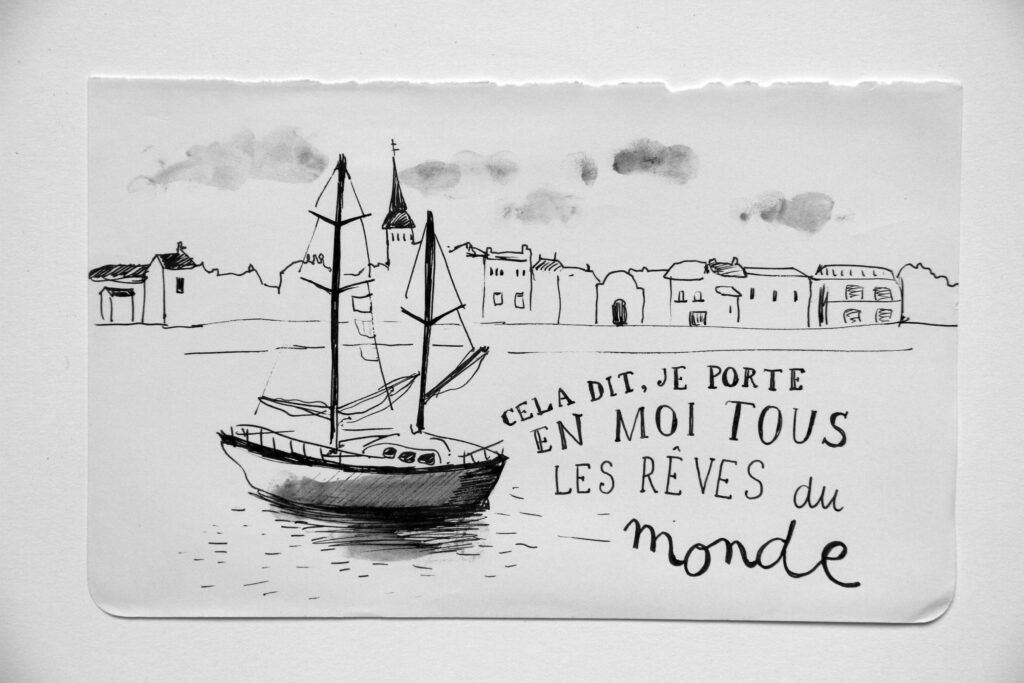 CELA DIT, JE PORTE
EN MOI TOUS
LES RÊVES du
monde